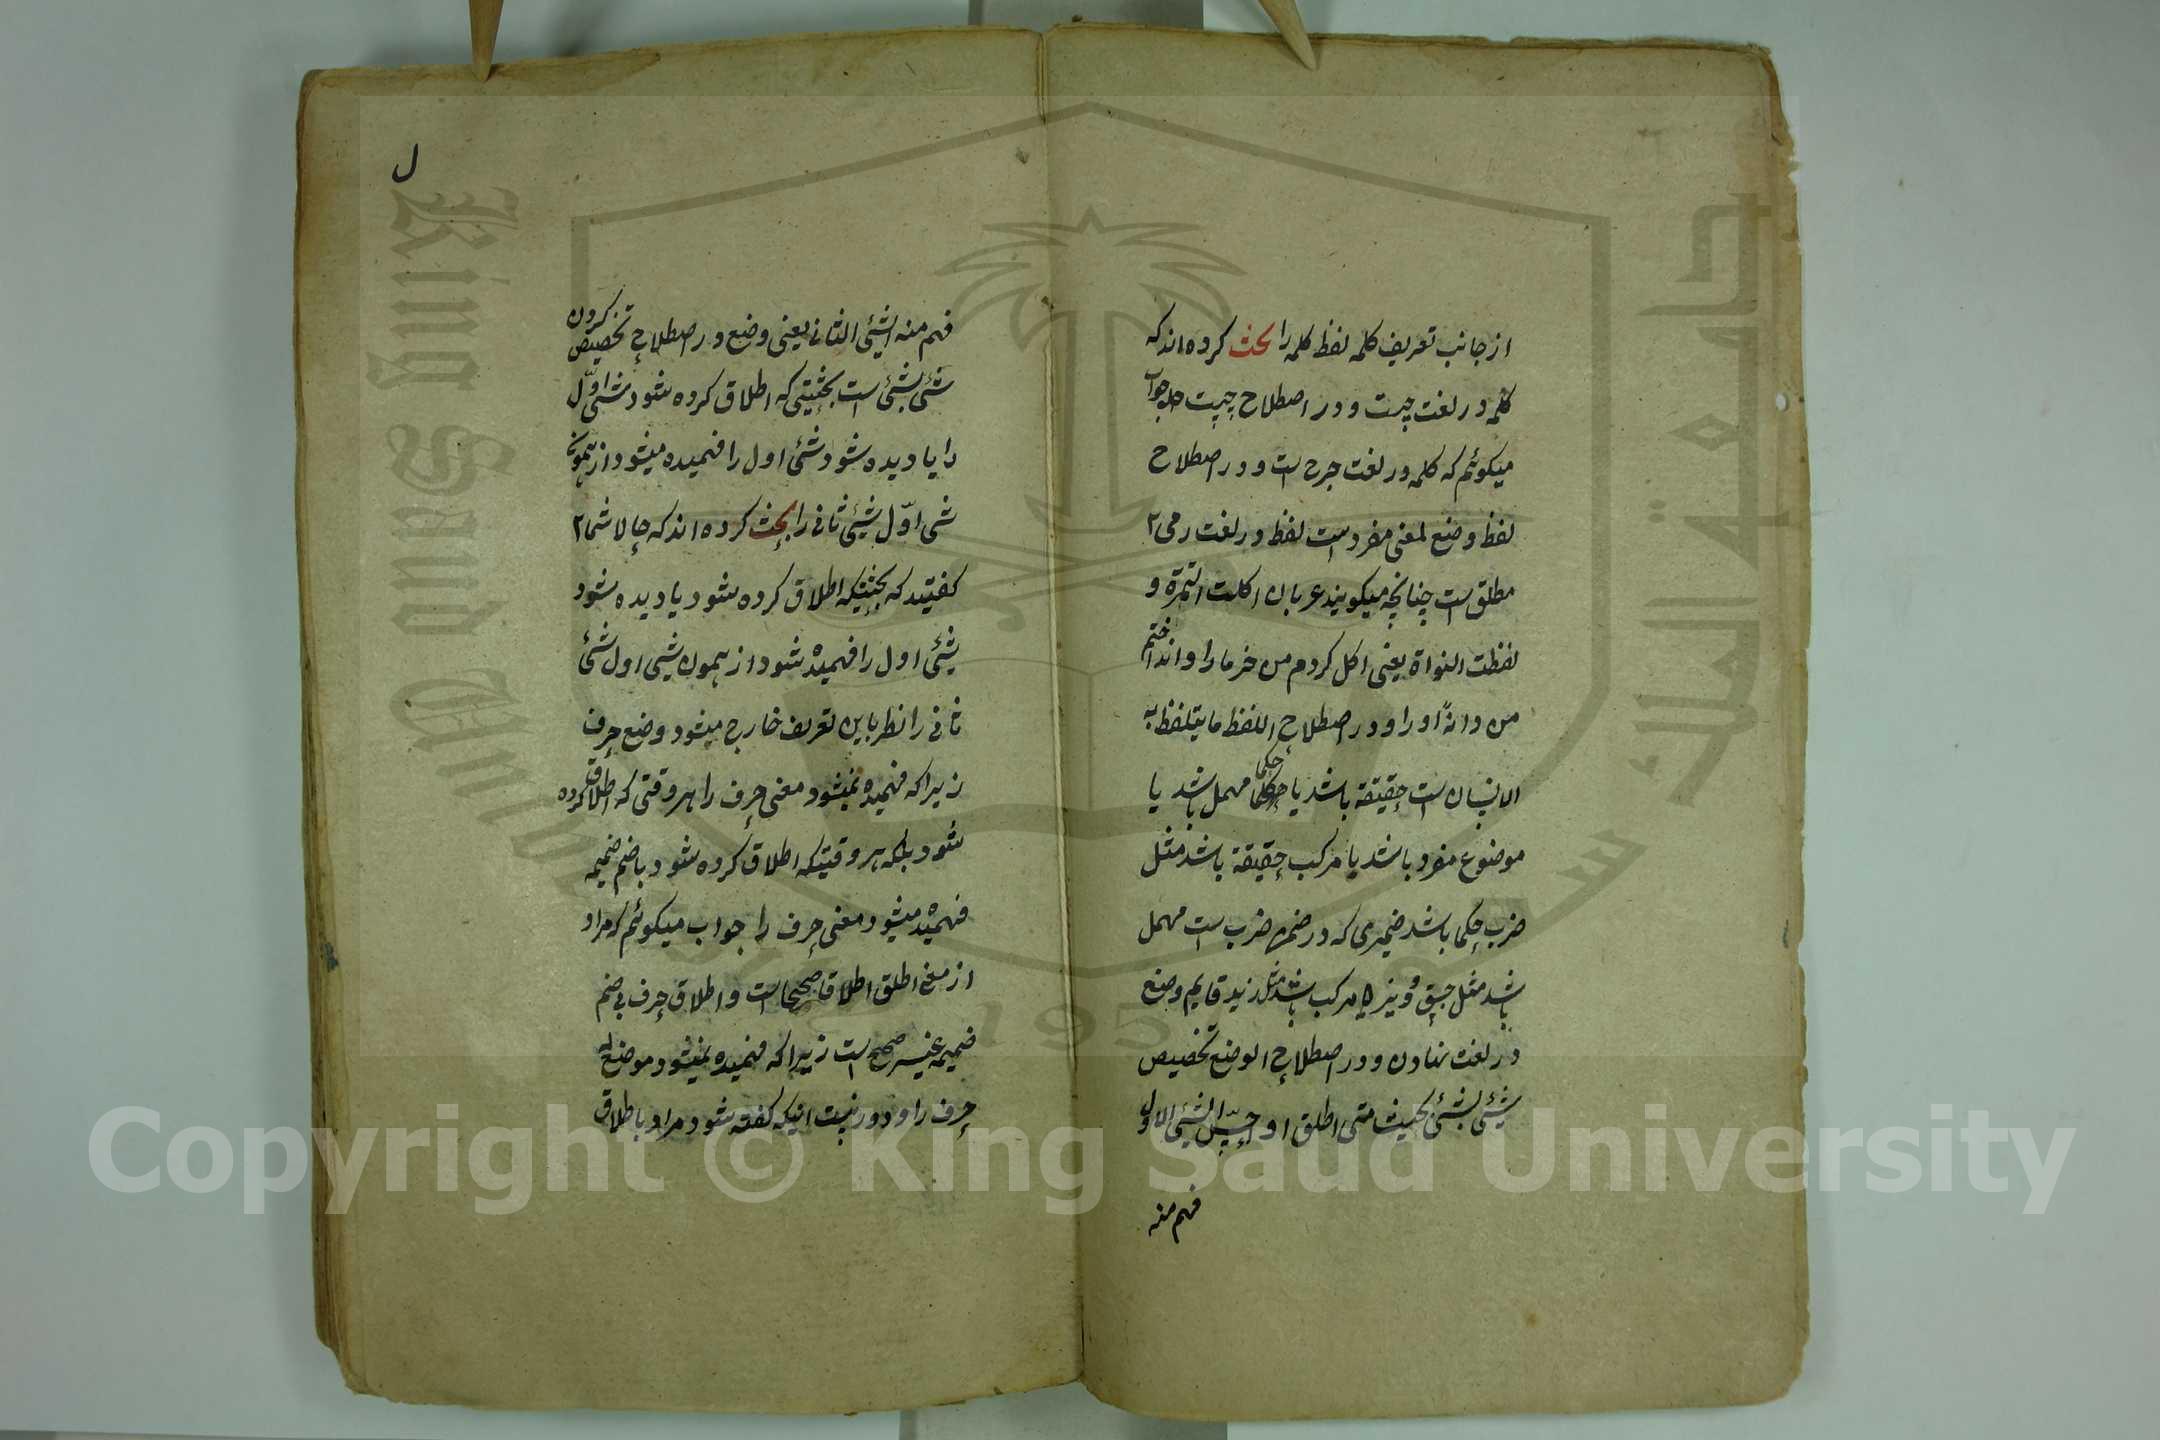 از جانب تعریف کلمه لفظ کلمه را بحث کرده‌اند که
کلمه در لغت چیست و در اصطلاح چیست جواب
میکوئم که کلمه در لغت جرح است و در اصطلاح
لفظ وضع لمعنی مفرد است لفظ در لغت رمی
مطلق است چنانچه میکویند عربان اکلت التمرة و
لفظت النواة یعنی اکل کردم من خرما را و انداختم
من دانهٔ او را و در اصطلاح اللفظ ما یتلفظ به
الانسان است حقیقة باشد یا حکما مهمل باشد یا
موضوع مفرد باشد یا مرکب حقیقة باشد مثل
ضرب حکما باشد ضمیری که در ضمن ضرب است مهمل
باشد مثل جسق و دیز یا مرکب باشد مثل زید قایم وضع
در لغت نهادن و در اصطلاح الوضع تخصیص
شیئی بشئی بحیث متی اطلق او احسّ الشیئی الاول
فهم منه
ل
فهم منه الشیئی الثانی یعنی وضع در اصطلاح تخصیص کردن
شئی بشئی است بحیثیتی که اطلاق کرده شود شئی اوّل
را یا دیده شود شئی اول را فهمیده میشود از همون
شی اوّل شیئی ثانی را بحث کرده اند که حالا شما
کفتید که بحیثیتیکه اطلاق کرده شود یا دیده شود
شیئی اول را فهمیده شود از همون شیی اول شئی
ثانی را نظر باین تعریف خارج میشود وضع حرف
زیرا که فهمیده نمیشود معنی حرف را هر وقتی که اطلاق کرده
شود بلکه هر وقتیکه اطلاق کرده شود با ضم ضمیمه
فهمیده میشود معنی حرف را جواب میکوئم که مراد
از معنی اطلق اطلاقا صحیحا است و اطلاق حرف بی ضم
ضمیمه غیر صحیح است زیرا که فهمیده نمیشود موضع له
حرف را و دور نیست اینکه کفته شود مراد باطلاق
Copyright © King Saud University